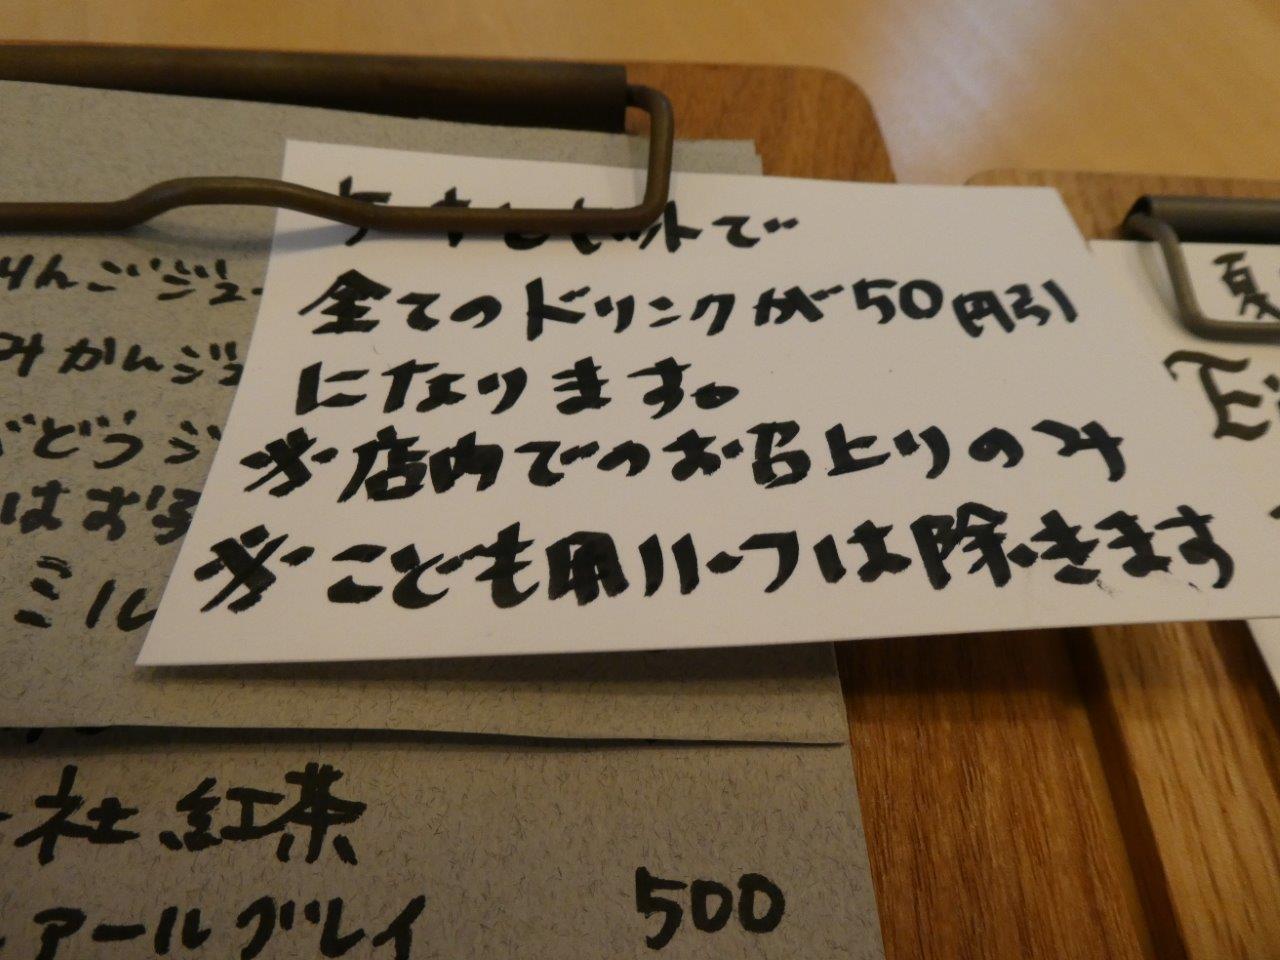 ケーキとセットで
全てのドリンクが50円引
になります。
※店内でのお召上りのみ
※こども用ハーフは除きます
りんごジュー
みかんジュ
ぶどうジ
ミル
社紅茶
アールグレイ 500
夏